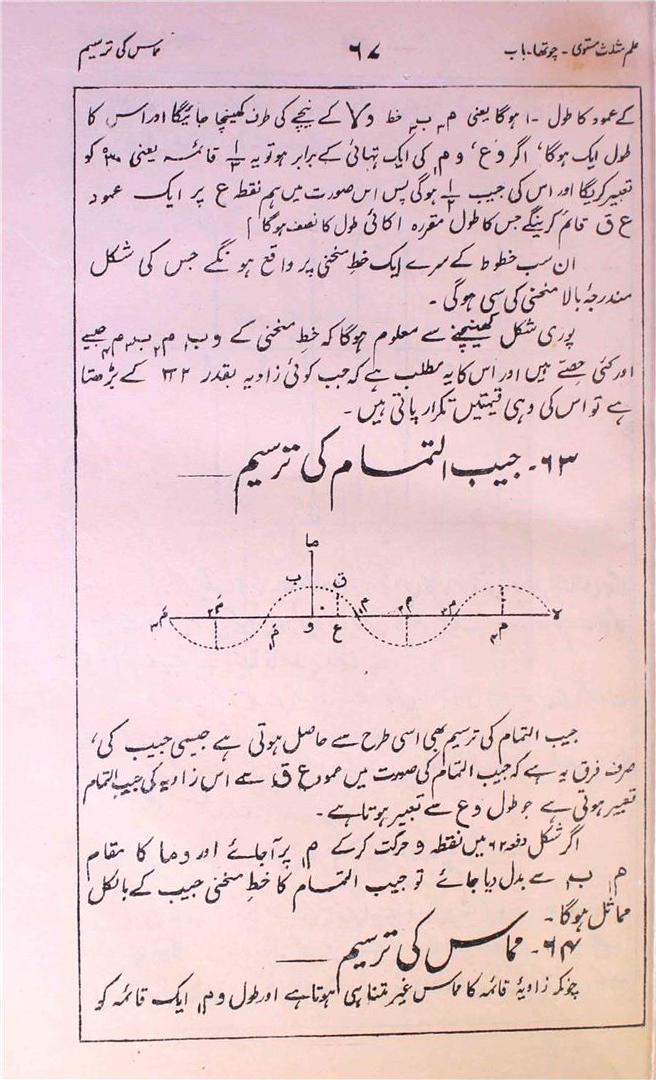 علم مثلث مستوی - چوتھا - باب
۶۷
مماس کی ترسیم
کے عمود کا طول - ا ہوگا یعنی م۳ ب۳ خط و لا کے نیچے کی طرف کھینچا جائیگا اور اس کا
طول ایک ہوگا، اگر و ع، و م۱ کی ایک تہائی کے برابر ہو تو یہ ۱/۳ قائمہ یعنی ۳۰° کو
تعبیر کریگا اور اس کی جیب ۱/۲ ہوگی پس اس صورت میں ہم نقطہ ع پر ایک عمود
ع ق قائم کرینگے جس کا طول مقررہ اکائی طول کا نصف ہوگا ]
ان سب خطوط کے سرے ایک خطِ منحنی پر واقع ہونگے جس کی شکل
مندرجۂ بالا منحنی کی سی ہوگی -
پوری شکل کھینچنے سے معلوم ہوگا کہ خطِ منحنی کے و ب۱ م۲ ب۳ م۴ جیسے
اور کئی حصّے ہیں اور اس کا یہ مطلب ہے کہ جب کوئی زاویہ بقدر کے بڑھتا
ہے تو اس کی وہی قیمتیں تکرار پاتی ہیں -
۶۳ - جیب التمام کی ترسیم
ما
ب ق
م۴ م۲ م۱ و ع م۱ م۲ م۳ م۴ لا
جیب التمام کی ترسیم بھی اسی طرح سے حاصل ہوتی ہے جیسی جیب کی،
صرف فرق یہ ہے کہ جیب التمام کی صورت میں عمود ع ق سے اس زاویہ کی جیب التمام
تعبیر ہوتی ہے جو طول و ع سے تعبیر ہوتا ہے -
اگر شکل دفعہ ۶۲ میں نقطہ و حرکت کرکے م۱ پر آجائے اور و ما کا مقام
م۱ ب۱ سے بدل دیا جائے تو جیب التمام کا خطِ منحنی جیب کے بالکل
مماثل ہوگا -
۶۴ - مماس کی ترسیم
چونکہ زاویۂ قائمہ کا مماس غیر متناہی ہوتا ہے اور طول و م۱ ایک قائمہ کو